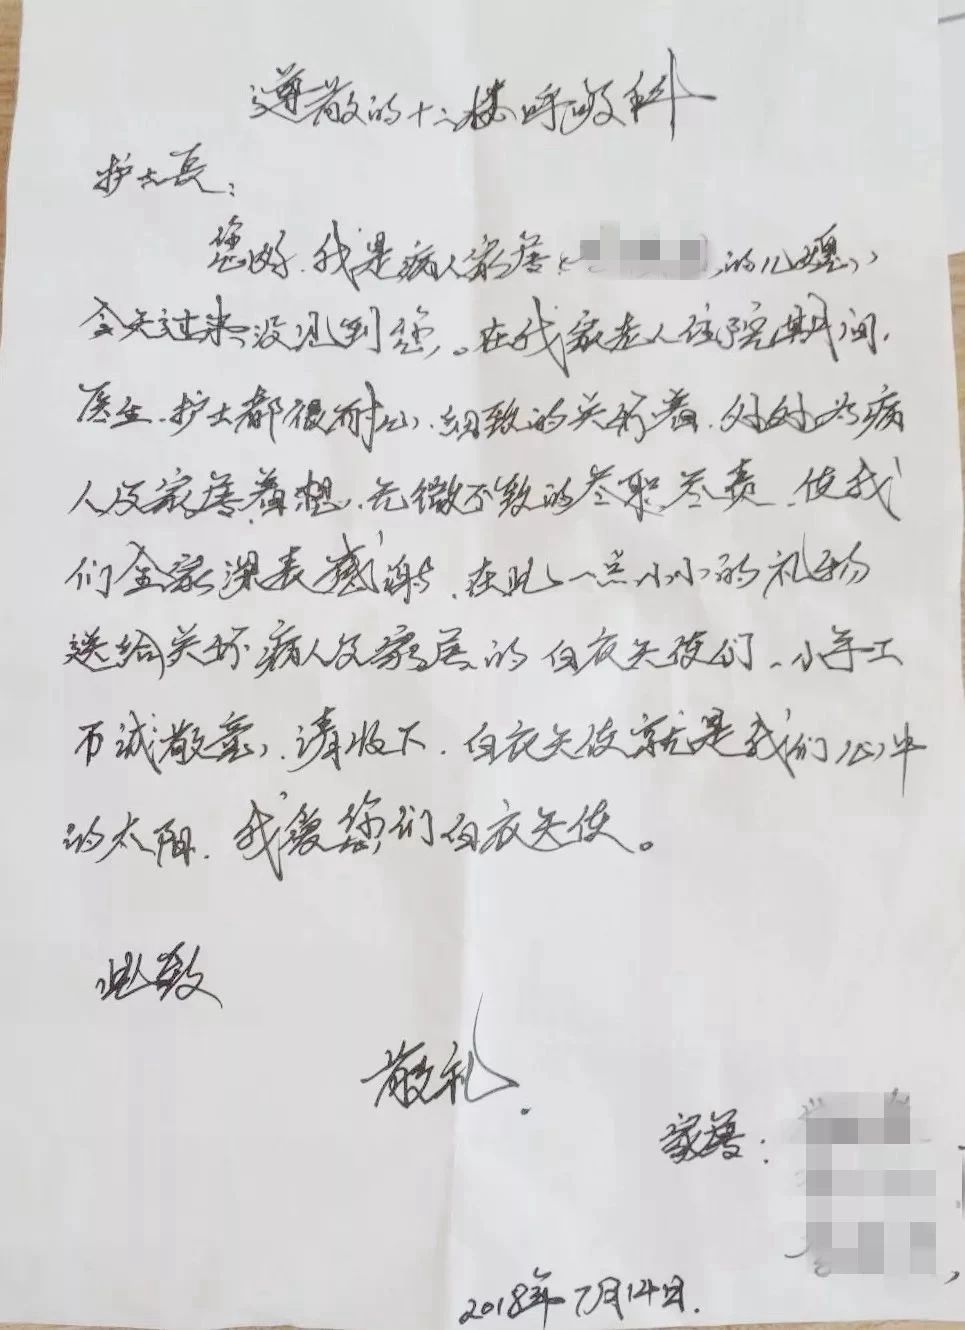 尊敬的十二楼呼吸科
护士长：
您好，我是病人家属（的儿媳），
今天过来没见到您，。在我家老人住院期间，
医生、护士都很耐心、细致的关怀着，处处为病
人及家属着想，无微不致的尽职尽责，使我
们全家深表感谢，在此一点小小的礼物
送给关怀病人及家属的白衣天使们，小手工
币诚敬意，请收下，白衣天使就是我们心中
的太阳，我爱您们白衣天使。
此致
敬礼。
家属：
2018年7月14日.